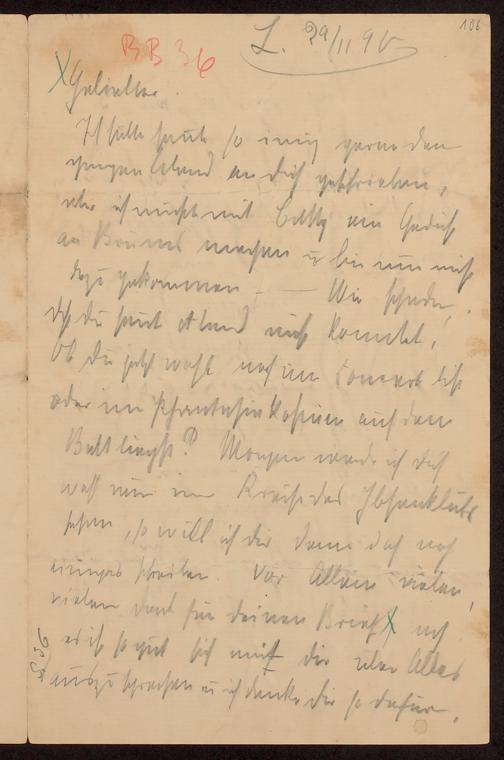 106
BB 36
L. 29/11 95
X Geliebter.
Ich hätte heute so innig gerne den
ganzen Abend an dich geschrieben,
aber ich mußte mit Betty ein Gedicht
an Brunos machen u bin nun nicht
dazu gekommen – Wie schade,
daß du heut Abend nicht kommst!
Ob du jetzt wohl noch im Concert bist
oder im Phantasiekostüm auf dem
Bett liegst? Morgen werde ich dich
wohl nur im Kreise des Ibsenklubs
sehen, so will ich dir denn doch noch
einiges schreiben. Vor Allem vielen,
vielen Dank für deinen Brief X
es ist so gut sich mit dir über Alles
auszusprechen u ich danke dir so dafür,